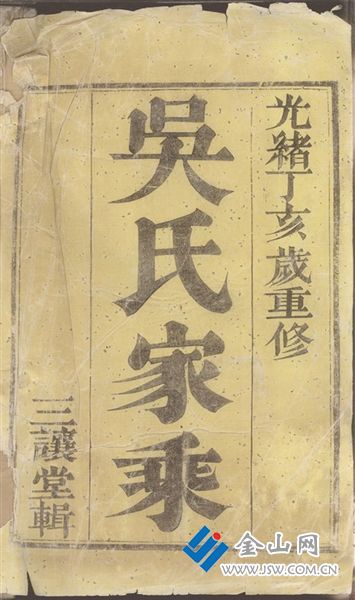 光緒丁亥歲重修
吳氏家乘
三讓堂輯
金山网
WWW.JSW.COM.CN